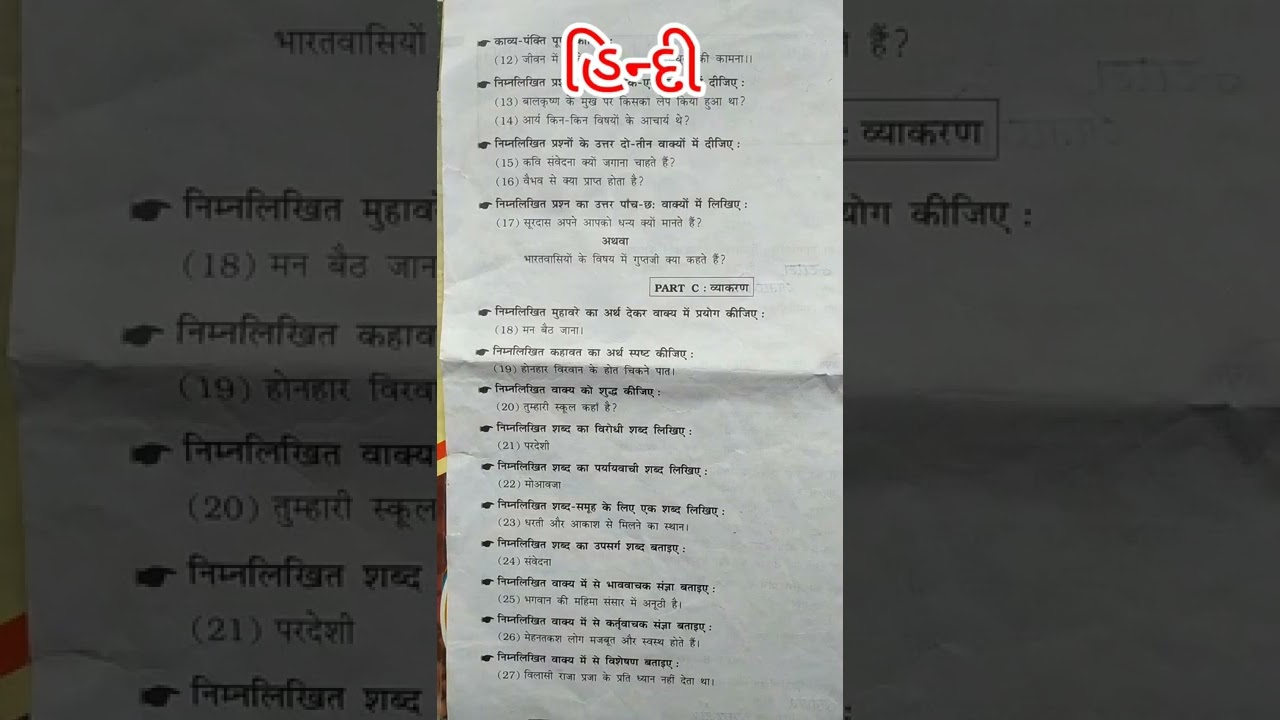 હિન્દી
काव्य-पंक्ति
(12) जीवन में की कामना।।
निम्नलिखित दीजिए :
(13) बालकृष्ण के मुख पर किसका लेप किया हुआ था?
(14) आर्य किन-किन विषयों के आचार्य थे?
निम्नलिखित प्रश्नों के उत्तर दो-तीन वाक्यों में दीजिए :
(15) कवि संवेदना क्यों जगाना चाहते हैं?
(16) वैभव से क्या प्राप्त होता है?
निम्नलिखित प्रश्न का उत्तर पांच-छः वाक्यों में लिखिए :
(17) सूरदास अपने आपको धन्य क्यों मानते हैं?
अथवा
भारतवासियों के विषय में गुप्तजी क्या कहते हैं?
PART C : व्याकरण
निम्नलिखित मुहावरे का अर्थ देकर वाक्य में प्रयोग कीजिए :
(18) मन बैठ जाना।
निम्नलिखित कहावत का अर्थ स्पष्ट कीजिए :
(19) होनहार विरवान के होत चिकने पात।
निम्नलिखित वाक्य को शुद्ध कीजिए :
(20) तुम्हारी स्कूल कहां है?
निम्नलिखित शब्द का विरोधी शब्द लिखिए :
(21) परदेशी
निम्नलिखित शब्द का पर्यायवाची शब्द लिखिए :
(22) मोआवजा
निम्नलिखित शब्द-समूह के लिए एक शब्द लिखिए :
(23) धरती और आकाश से मिलने का स्थान।
निम्नलिखित शब्द का उपसर्ग शब्द बताइए :
(24) संवेदना
निम्नलिखित वाक्य में से भाववाचक संज्ञा बताइए :
(25) भगवान की महिमा संसार में अनूठी है।
निम्नलिखित वाक्य में से कर्तृवाचक संज्ञा बताइए :
(26) मेहनतकश लोग मजबूत और स्वस्थ होते हैं।
निम्नलिखित वाक्य में से विशेषण बताइए :
(27) विलासी राजा प्रजा के प्रति ध्यान नहीं देता था।